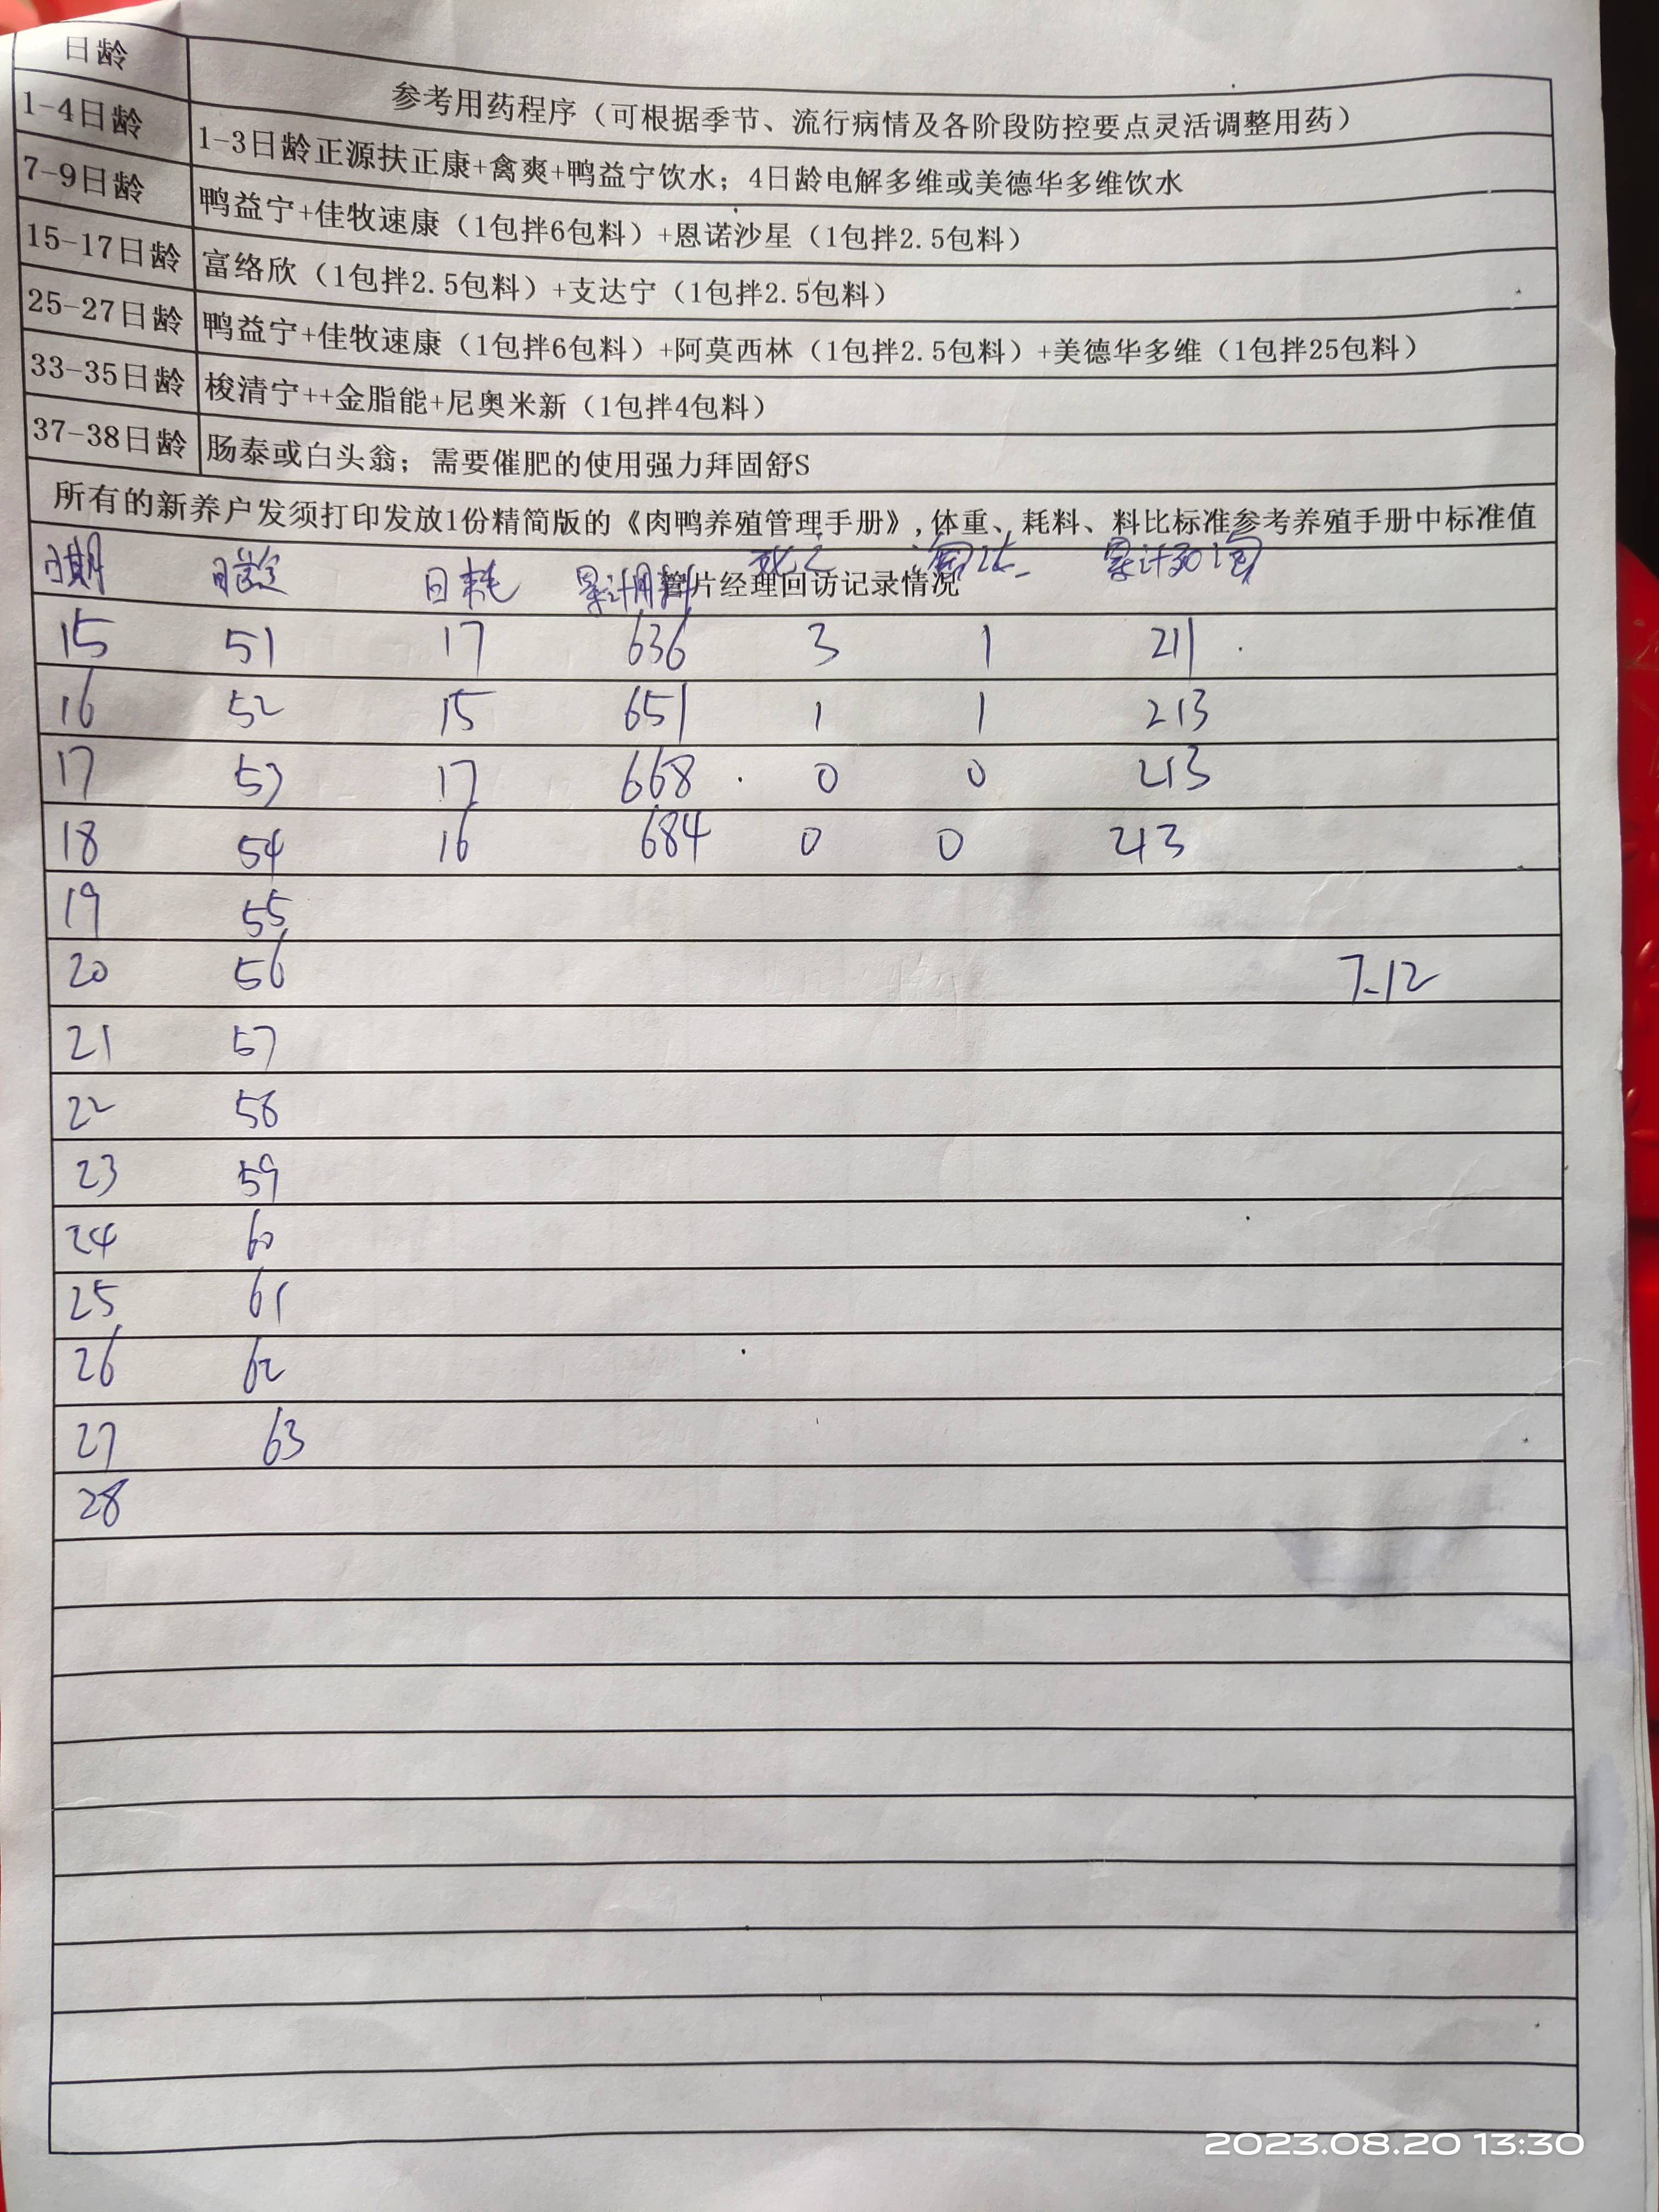 日龄
参考用药程序（可根据季节、流行病情及各阶段防控要点灵活调整用药）
1-4日龄 1-3日龄正源扶正康+禽爽+鸭益宁饮水；4日龄电解多维或美德华多维饮水
7-9日龄 鸭益宁+佳牧速康（1包拌6包料）+恩诺沙星（1包拌2.5包料）
15-17日龄 富络欣（1包拌2.5包料）+支达宁（1包拌2.5包料）
25-27日龄 鸭益宁+佳牧速康（1包拌6包料）+阿莫西林（1包拌2.5包料）+美德华多维（1包拌25包料）
33-35日龄 梭清宁++金脂能+尼奥米新（1包拌4包料）
37-38日龄 肠泰或白头翁；需要催肥的使用强力拜固舒S
所有的新养户发须打印发放1份精简版的《肉鸭养殖管理手册》,体重、耗料、料比标准参考养殖手册中标准值
管片经理回访记录情况
日期 日龄 日耗 累计用料 死亡 淘汰 累计死淘
15 51 17 636 3 1 211
16 52 15 651 1 1 213
17 53 17 668 0 0 213
18 54 16 684 0 0 213
19 55
20 56 7-12
21 57
22 58
23 59
24 60
25 61
26 62
27 63
28
2023.08.20 13:30